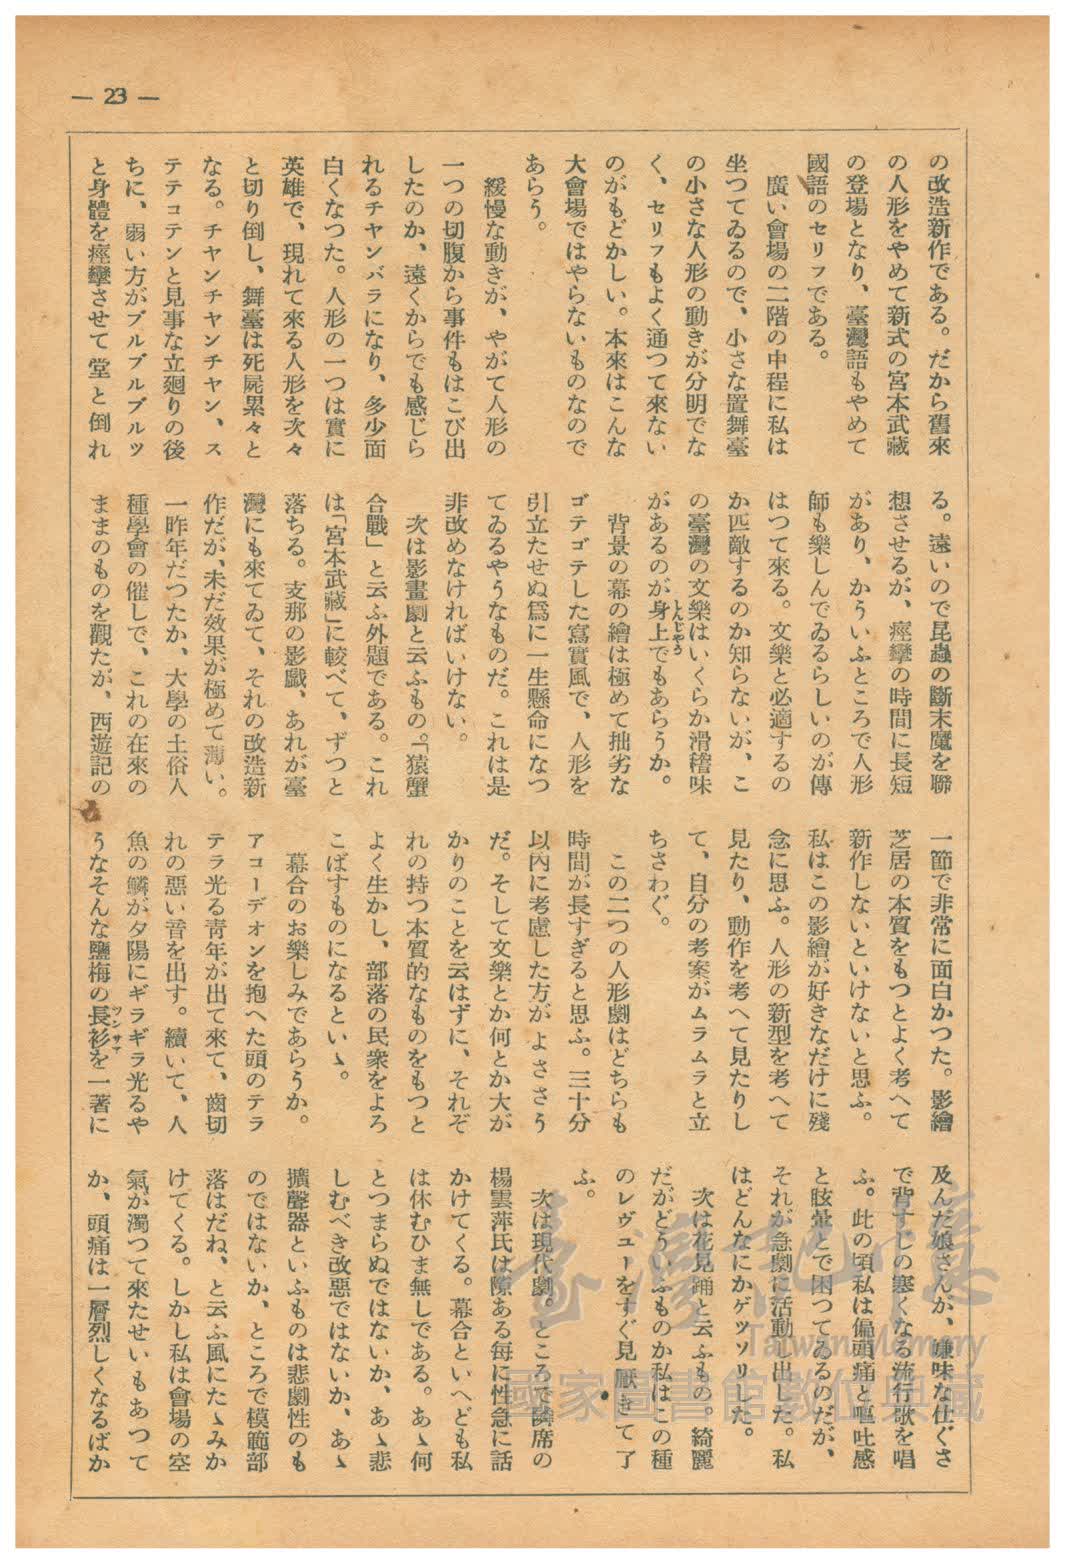 — 23 —
の改造新作である。だから舊來
の人形をやめて新式の宮本武藏
の登場となり、臺灣語もやめて
國語のセリフである。
廣い會場の二階の中程に私は
坐つてゐるので、小さな置舞臺
の小さな人形の動きが分明でな
く、セリフもよく通つて來ない
のがもどかしい。本來はこんな
大會場ではやらないものなので
あらう。
緩慢な動きが、やがて人形の
一つの切腹から事件もはこび出
したのか、遠くからでも感じら
れるチヤンバラになり、多少面
白くなつた。人形の一つは實に
英雄で、現れて來る人形を次々
と切り倒し、舞臺は死屍累々と
なる。チヤンチヤンチヤン、ス
テテコテンと見事な立廻りの後
ちに、弱い方がブルブルブルツ
と身體を痙攣させて堂と倒れ
る。遠いので昆蟲の斷末魔を聯
想させるが、痙攣の時間に長短
があり、かういふところで人形
師も樂しんでゐるらしいのが傳
はつて來る。文樂と必適するの
か匹敵するのか知らないが、こ
の臺灣の文樂はいくらか滑稽味
があるのが身上でもあらうか。
しんじやう
背景の幕の繪は極めて拙劣な
ゴテゴテした寫實風で、人形を
引立たせぬ爲に一生懸命になつ
てゐるやうなものだ。これは是
非改めなければいけない。
次は影畫劇と云ふもの。「猿蟹
合戰」と云ふ外題である。これ
は「宮本武藏」に較べて、ずつと
落ちる。支那の影戲、あれが臺
灣にも來てゐて、それの改造新
作だが、未だ效果が極めて薄い。
一昨年だつたか、大學の土俗人
種學會の催しで、これの在來の
ままのものを觀たが、西遊記の
一節で非常に面白かつた。影繪
芝居の本質をもつとよく考へて
新作しないといけないと思ふ。
私はこの影繪が好きなだけに殘
念に思ふ。人形の新型を考へて
見たり、動作を考へて見たりし
て、自分の考案がムラムラと立
ちさわぐ。
この二つの人形劇はどちらも
時間が長すぎると思ふ。三十分
以內に考慮した方がよささう
だ。そして文樂とか何とか大が
かりのことを云はずに、それぞ
れの持つ本質的なものをもつと
よく生かし、部落の民衆をよろ
こばすものになるといゝ。
幕合のお樂しみであらうか。
アコーデオンを抱へた頭のテラ
テラ光る靑年が出て來て、齒切
れの惡い音を出す。續いて、人
魚の鱗が夕陽にギラギラ光るや
うなそんな鹽梅の長衫を一著に
ツンサア
及んだ娘さんが、嫌味な仕ぐさ
で背すじの寒くなる流行歌を唱
ふ。此の頃私は偏頭痛と嘔吐感
と眩暈とで困つてゐるのだが、
それが急劇に活動し出した。私
はどんなにかゲツソリした。
次は花見踊と云ふもの。綺麗
だがどういふものか私はこの種
のレヴユーをすぐ見厭きて了
ふ。
次は現代劇。ところで隣席の
楊雲萍氏は隙ある每に性急に話
かけてくる。幕合といへども私
は休むひま無しである。あゝ何
とつまらぬではないか、あゝ悲
しむべき改惡ではないか、あゝ
擴聲器といふものは悲劇性のも
のではないか、ところで模範部
落はだね、と云ふ風にたゝみか
けてくる。しかし私は會場の空
氣が濁つて來たせいもあつて
か、頭痛は一層烈しくなるばか
臺灣記憶
Taiwan Memory
國家圖書館數位典藏